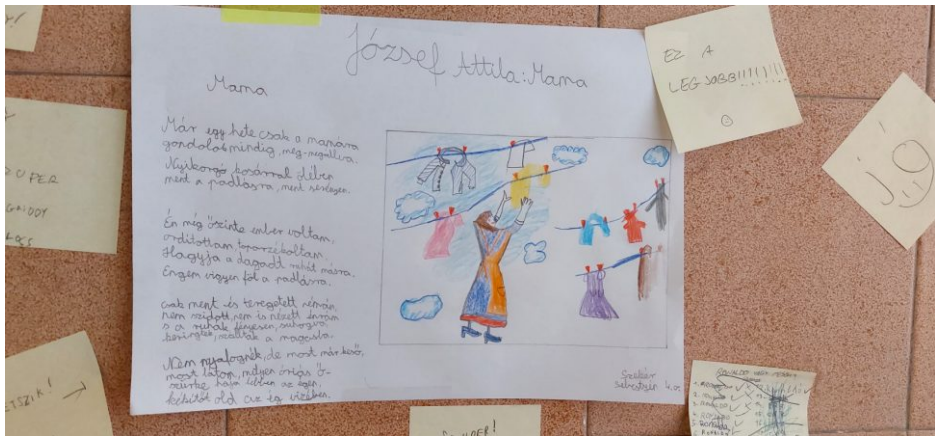 József Attila: Mama
Mama
Már egy hete csak a mamára
gondolok mindig, meg-megállva.
Nyikorgó kosárral ölében
ment a padlásra, ment serényen.
Én még őszinte ember voltam,
ordítottam, toporzékoltam.
Hagyja a dagadt ruhát másra.
Engem vigyen föl a padlásra.
csak ment és teregetett némán,
nem szidott, nem is nézett énrám
s a ruhák fényesen, suhogva,
keringtek, szálltak a magosba.
Nem nyafognék, de most már késő,
most látom, milyen óriás ő-
szürke haja lebben az égen,
kékítőt old az ég vizében.
Szekér
Sebestyén 4.o.
EZ A
LEGJOBB!!!!!!!!
UPER
TETSZIK!